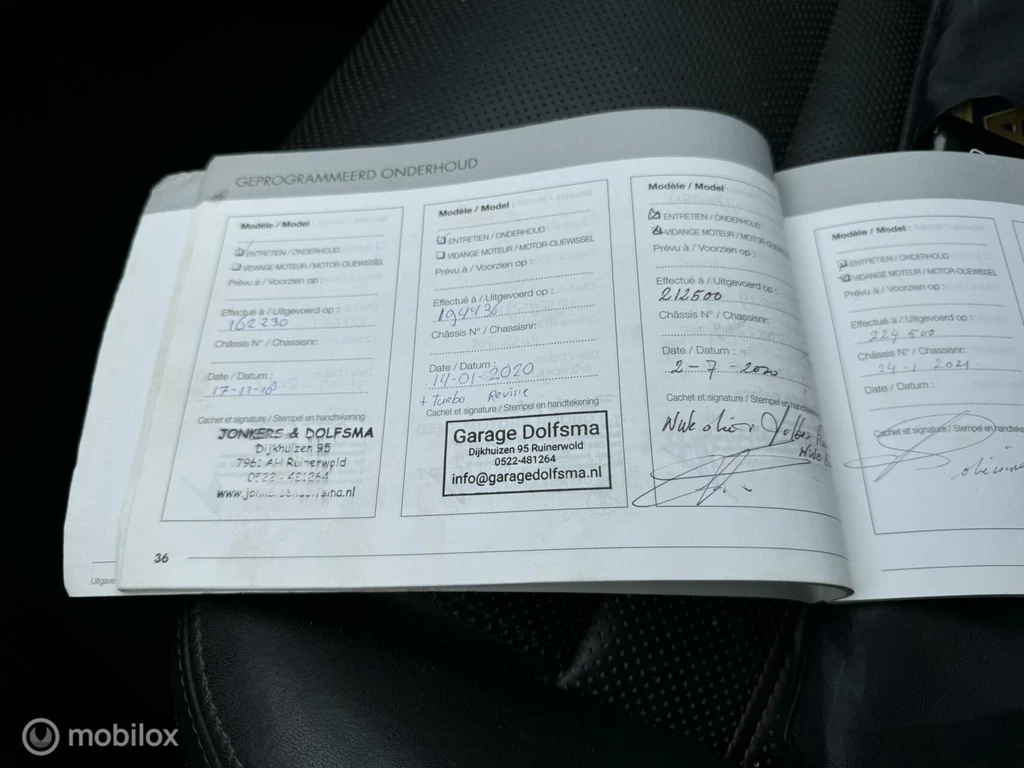 GEPROGRAMMEERD ONDERHOUD
Modèle / Model :
ENTRETIEN / ONDERHOUD
VIDANGE MOTEUR / MOTOR-OLIEWISSEL
Prévu à / Voorzien op :
Effectué à / Uitgevoerd op :
162230
Châssis N° / Chassisnr:
Date / Datum :
17-11-
Cachet et signature / Stempel en handtekening
JONKERS & DOLFSMA
Dijkhuizen 95
7961 AH Ruinerwold
0522 - 481264
Modèle / Model :
ENTRETIEN / ONDERHOUD
VIDANGE MOTEUR / MOTOR-OLIEWISSEL
Prévu à / Voorzien op :
Effectué à / Uitgevoerd op :
194436
Châssis N° / Chassisnr:
Date / Datum :
14-01-2020
+ Turbo Revisie
Cachet et signature / Stempel en handtekening
Garage Dolfsma
Dijkhuizen 95 Ruinerwold
0522-481264
info@garagedolfsma.nl
Modèle / Model :
ENTRETIEN / ONDERHOUD
VIDANGE MOTEUR / MOTOR-OLIEWISSEL
Prévu à / Voorzien op :
Effectué à / Uitgevoerd op :
212500
Châssis N° / Chassisnr:
Date / Datum :
2-7-2020
Cachet et signature / Stempel en handtekening
Modèle / Model :
ENTRETIEN / ONDERHOUD
VIDANGE MOTEUR / MOTOR-OLIEWISSEL
Prévu à / Voorzien op :
Effectué à / Uitgevoerd op :
224 500
Châssis N° / Chassisnr:
24-1 2021
Date / Datum :
Cachet et signature / Stempel en
36
Uitgave
mobilox